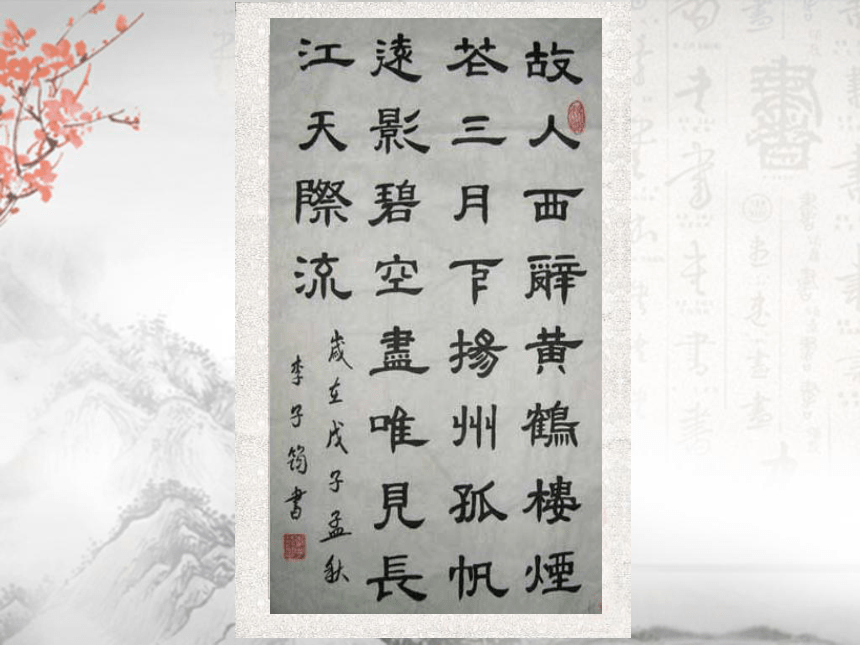 故人西辭黄鶴樓煙
花三月下揚州孤帆
遠影碧空盡唯見長
江天際流
歲在戊子孟秋
李子筠書